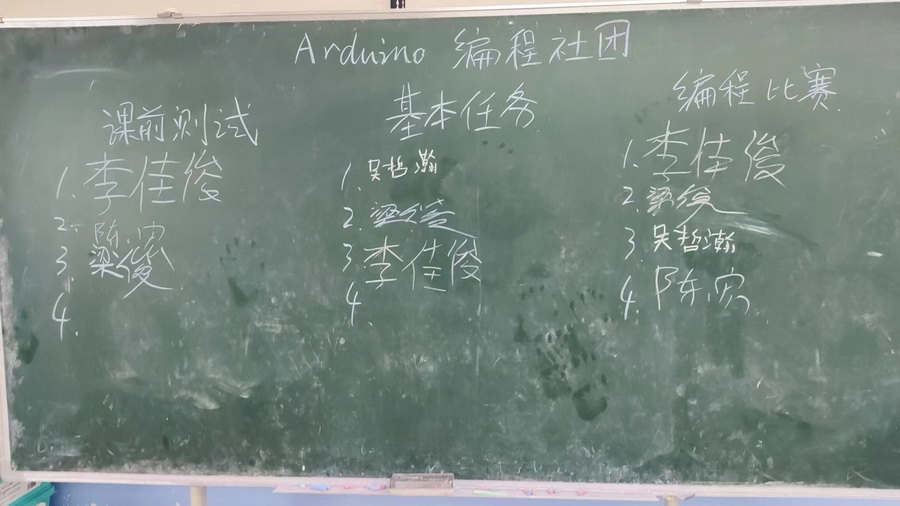 Arduino 编程社团
课前测试
1. 李佳俊
2. 陈
3. 梁俊
4.
基本任务
1. 吴哲瀚
2. 梁
3. 李佳俊
4.
编程比赛
1. 李佳俊
2. 梁
3. 吴哲瀚
4. 陈